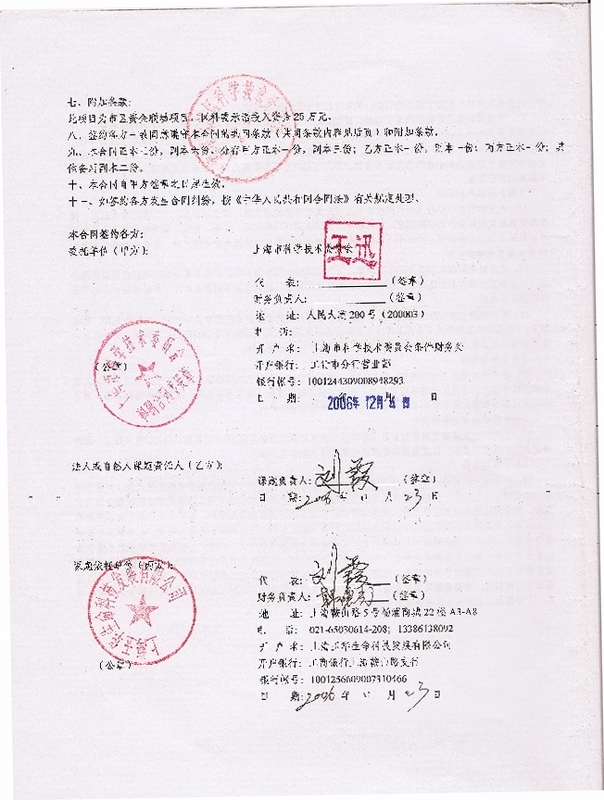 七、附加条款:
此项目为市区资金联动项目,区科委承诺投入资为25万元。
八、签约各方一致同意遵守本合同的共同条款(共同条款内容见后页)和附加条款。
九、本合同正本三份,副本六份,分存甲方正本一份,副本三份;乙方正本一份,副本一份;丙方正本一份;其
他备用副本二份。
十、本合同自甲方签章之日起生效。
十一、如签约各方发生合同纠纷,按《中华人民共和国合同法》有关规定处理。
本合同签约各方:
委托单位(甲方):
上海市科学技术委员会
代 表: (签章)
财务负责人: (签章)
地 址:人民大道200号(200003)
电 话:
开 户 名:上海市科学技术委员会条件财务处
开户银行:工行市分行营业部
银行帐号:1001244309008948293
日 期 2006年12月 日
(公章)
法人或自然人课题责任人(乙方):
课题负责人:刘霞 (签章)
日 期:2006年11月23日
课题依托单位(丙方):
代 表:刘霞 (签章)
财务负责人: (签章)
地 址:上海鞍山路5号 22楼A3-A8
电 话:021-65030614-208;13386138092
开 户 名:上海 生命科技发展有限公司
开户银行:工商银行上海鞍山路支行
银行帐号:1001256809007310466
日 期:2006年11月23日
(公章)